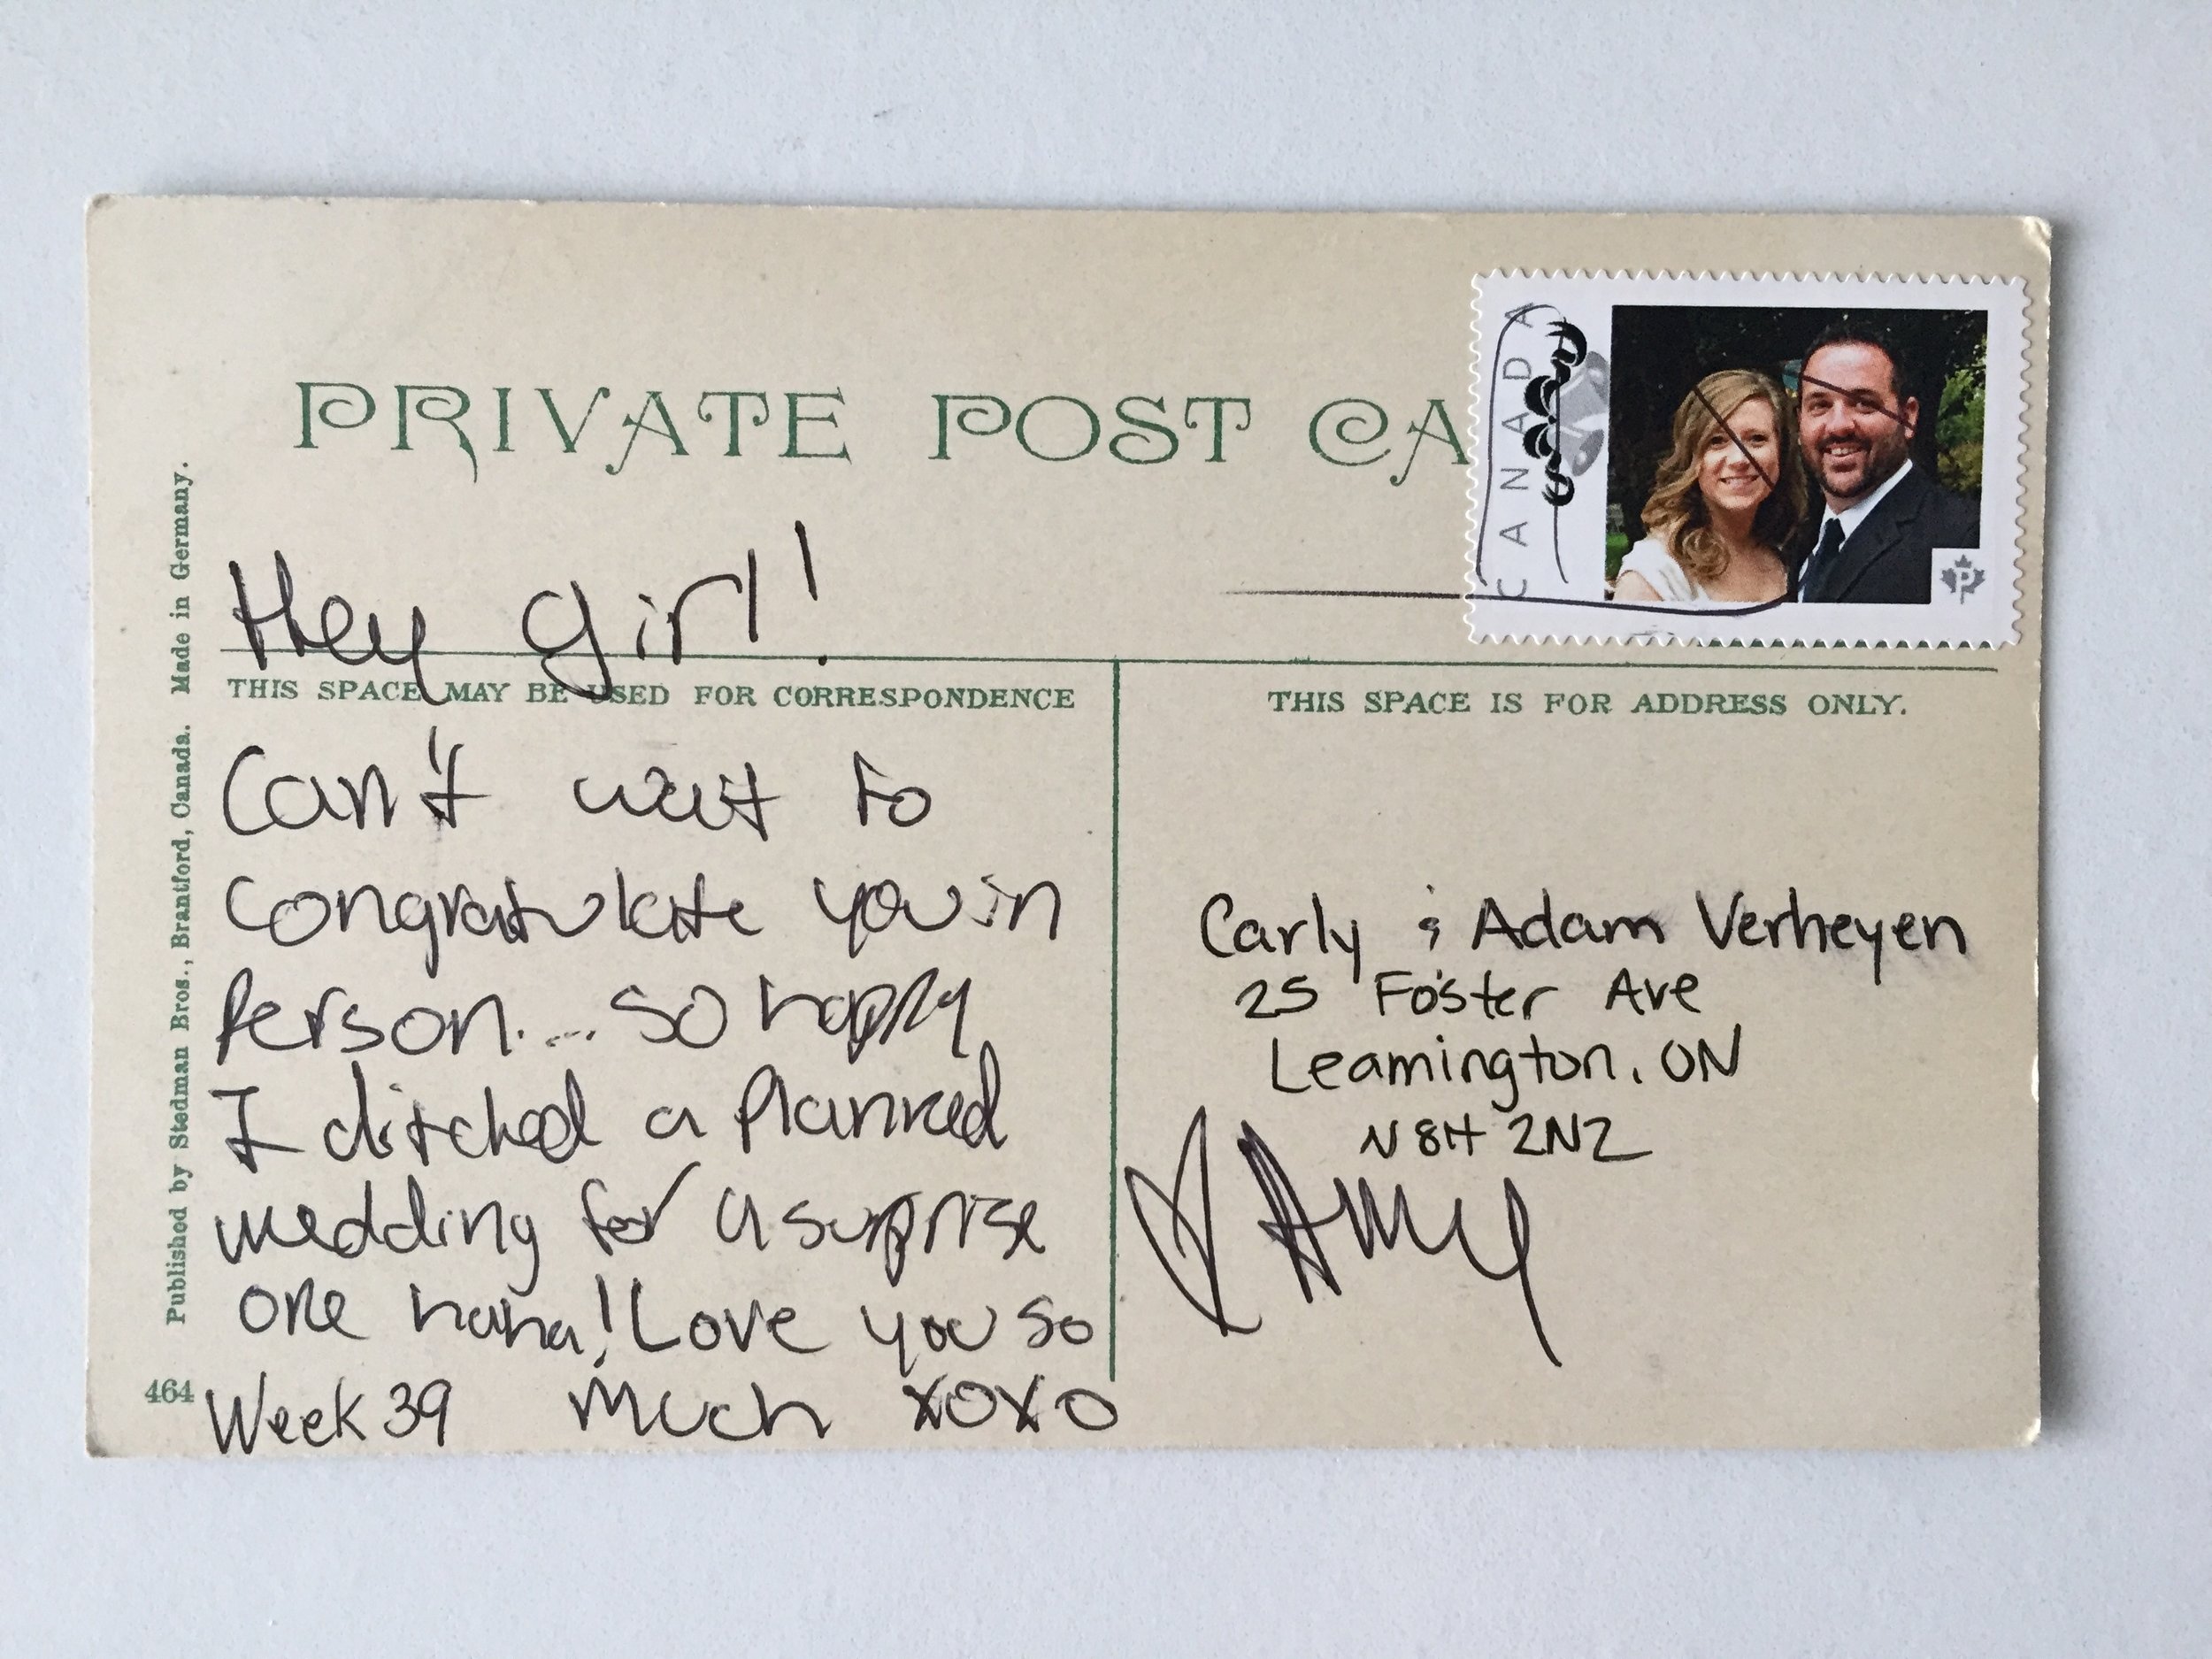 PRIVATE POST CA
CANADA
P
Hey girl!
THIS SPACE MAY BE USED FOR CORRESPONDENCE
Can't wait to
congratulate you in
person.... so happy
I ditched a planned
wedding for a surprise
one haha! Love you so
much xoxo
Week 39
THIS SPACE IS FOR ADDRESS ONLY.
Carly & Adam Verheyen
25 Foster Ave
Leamington, ON
N8H 2N2
Amy
Published by Stedman Bros., Brantford, Canada. Made in Germany.
464